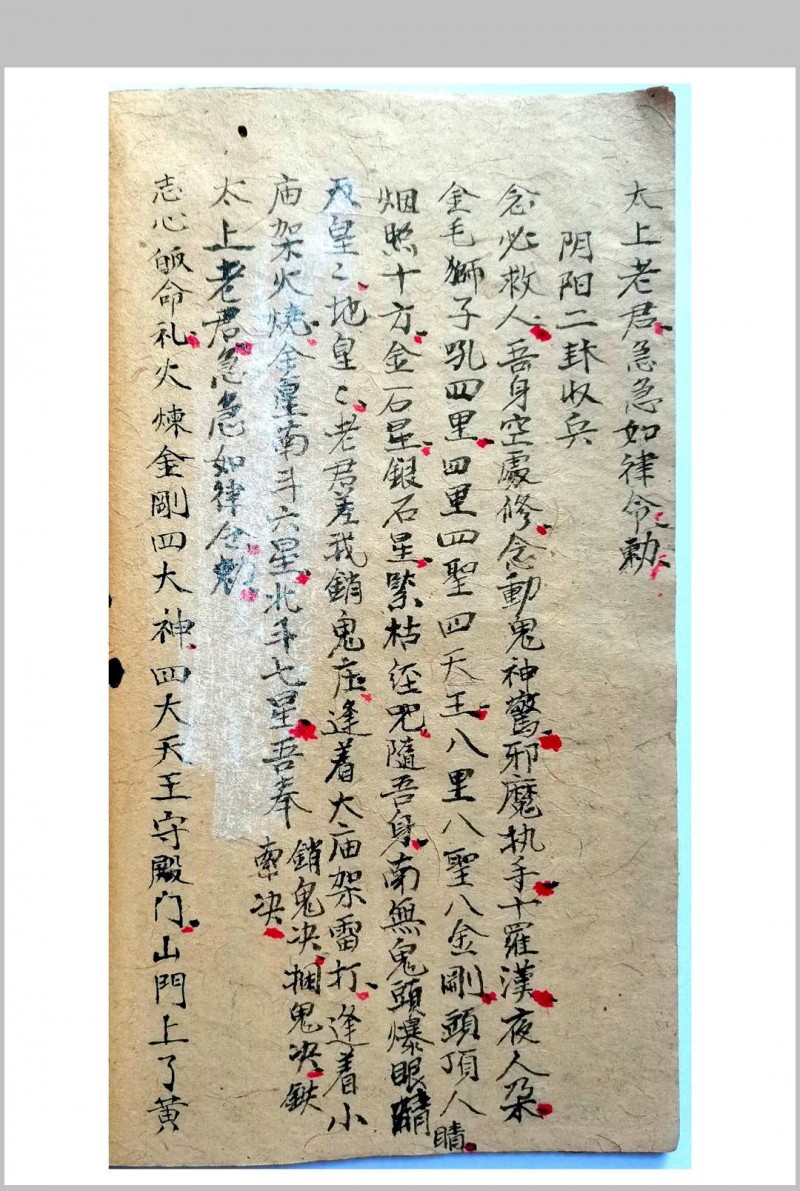 太上老君急急如律令勅
阴阳二封收兵
念必救人吾身空處修念動鬼神驚邪魔执手十羅漢夜人朶
金毛獅子吼四里四里四聖四天王八里八聖八金剛頭頂人
烟照十方金石星銀石星緊枯径咒隨吾身南無鬼頭爆眼睛
睛
天皇々地皇々老君差我銷鬼庄逢着大庙架雷打逢着小
庙架火燒金皇南斗六星北斗七星吾奉
銷鬼决捆鬼决鉄
牽决
太上老君急急如律令勅
志心皈命礼火煉金剛四大神四大天王守殿门山門上了黄